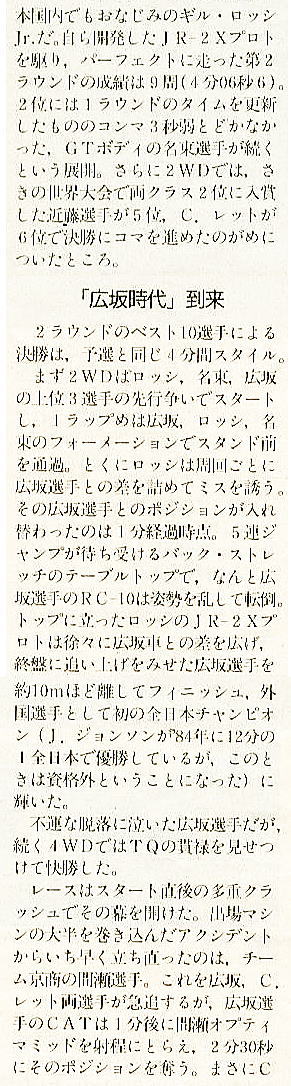 本国内でもおなじみのギル・ロッシ
Jr.だ。自ら開発したJR-2Xプロト
を駆り，パーフェクトに走った第2
ラウンドの成績は9周(4分06秒6)。
2位には1ラウンドのタイムを更新
したもののコンマ3秒弱とどかなか
った，GTボディの名東選手が続く
という展開。さらに2WDでは，さ
きの世界大会で両クラス2位に入賞
した近藤選手が5位，C．レットが
6位で決勝にコマを進めたのがめに
ついたところ。
「広坂時代」到来
2ラウンドのベスト10選手による
決勝は，予選と同じ4分間スタイル。
まず2WDはロッシ，名東，広坂
の上位3選手の先行争いでスタート
し，1ラップめは広坂，ロッシ，名
東のフォーメーションでスタンド前
を通過。とくにロッシは周回ごとに
広坂選手との差を詰めてミスを誘う。
その広坂選手とのポジションが入れ
替わったのは1分経過時点。5連ジ
ャンプが待ち受けるバック・ストレ
ッチのテーブルトップで，なんと広
坂選手のRC-10は姿勢を乱して転倒。
トップに立ったロッシのJR-2Xプ
ロトは徐々に広坂車との差を広げ，
終盤に追い上げをみせた広坂選手を
約10mほど離してフィニッシュ，外
国選手として初の全日本チャンピオ
ン（J．ジョンソンが'84年に12分の
1全日本で優勝しているが，このと
きは資格外ということになった）に
輝いた。
不運な脱落に泣いた広坂選手だが，
続く4WDではTQの貫禄を見せつ
けて快勝した。
レースはスタート直後の多重クラ
ッシュでその幕を開けた。出場マシ
ンの大半を巻き込んだアクシデント
からいち早く立ち直ったのは，チー
ム京商の間瀬選手。これを広坂，C．
レット両選手が急追するが，広坂選
手のCATは1分後に間瀬オプティ
マミッドを射程にとらえ，2分30秒
にそのポジションを奪う。まさにC